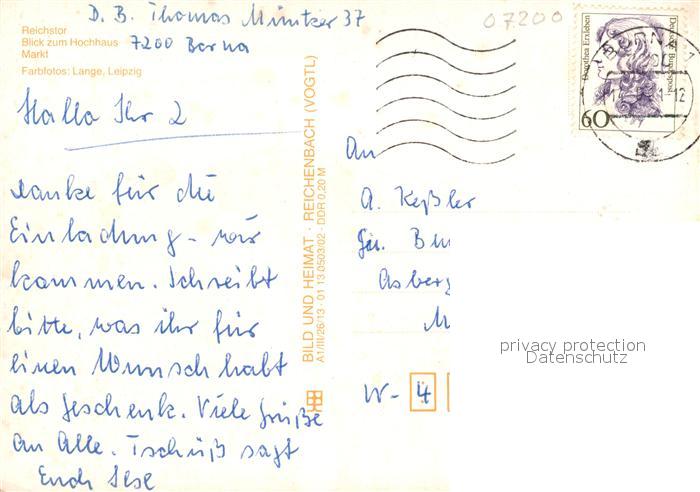 D. B. Thomas Müntzer 37
7200 Borna
07200
Reichstor
Blick zum Hochhaus
Markt
Farbfotos: Lange, Leipzig
Hallo Ihr 2
Danke für die
Einladung - wir
kommen. Schreibt
bitte, was ihr für
einen Wunsch habt
als Geschenk. Viele Grüße
an Alle. Tschüß sagt
Euch Ilse
BILD UND HEIMAT · REICHENBACH (VOGTL)
A1/III/26/13 · 01 13 0503/02 · DDR 0,20 M
Dorothea Erxleben
Deutsche Bundespost
60
BORNA 1
-12
An
A. Keßler
Asberg
W- 4
privacy protection
Datenschutz